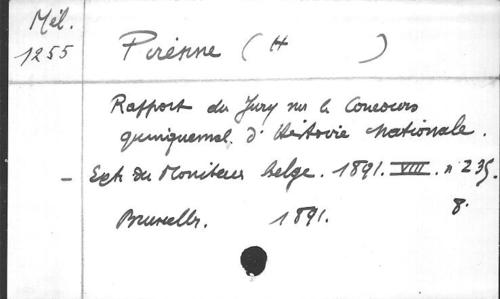 Mél.
1255
Pirenne (H )
Rapport du Jury sur le Concours
quinquennal d'Histoire Nationale.
- Extr. du Moniteur belge. 1891. VIII. n° 235.
Bruxelles. 1891. 8°